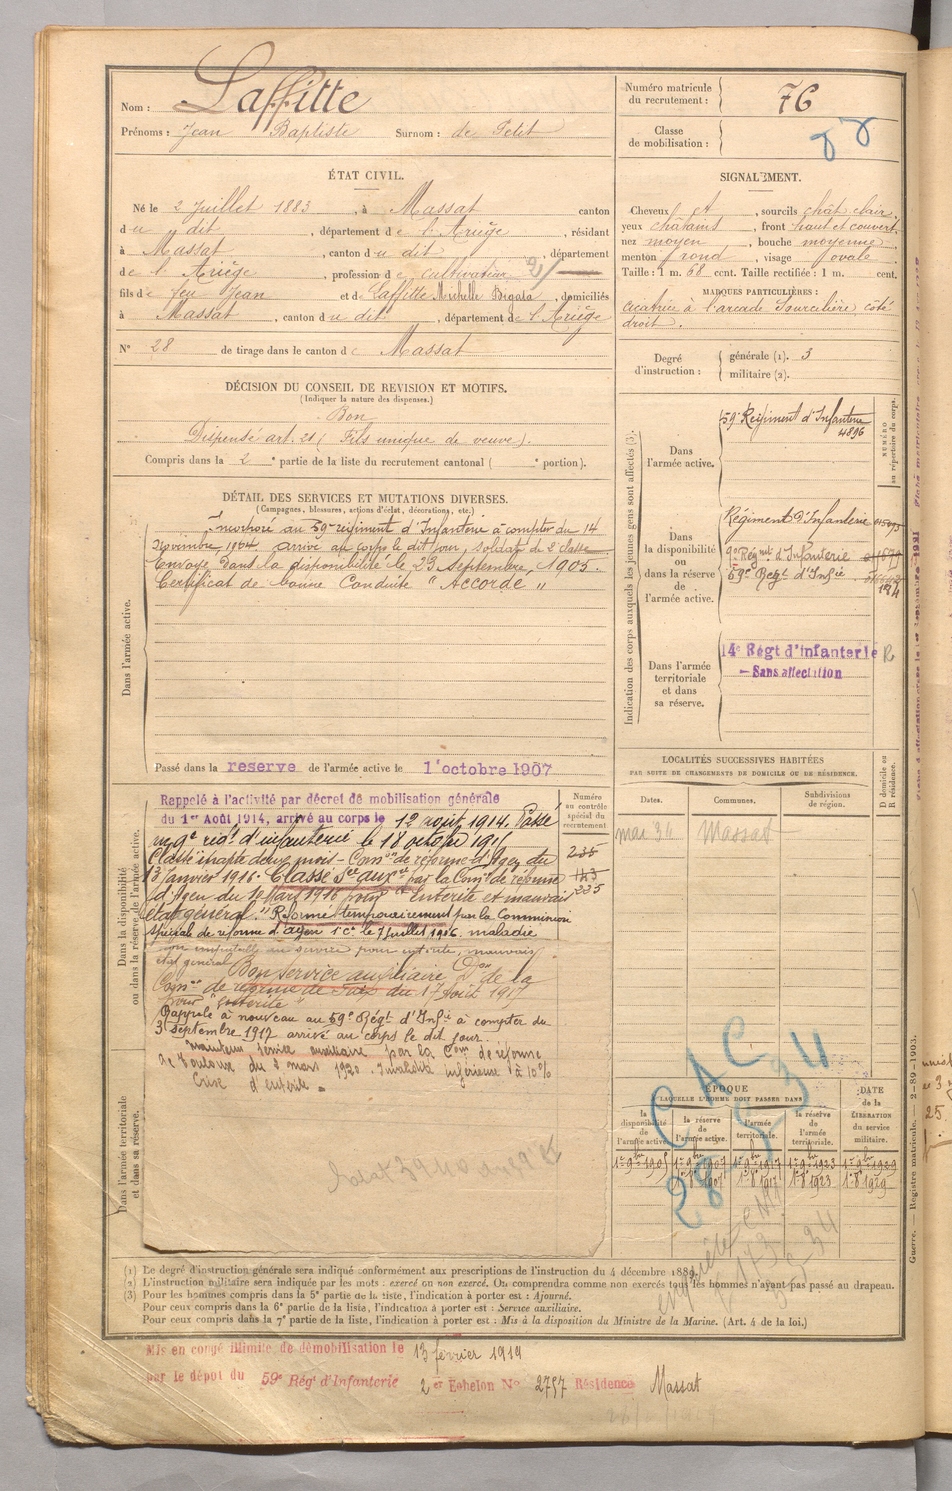 Nom : Laffitte
Prénoms : Jean Baptiste Surnom : de Petit
Numéro matricule du recrutement : 76
Classe de mobilisation :
ÉTAT CIVIL.
Né le 2 Juillet 1883, à Massat canton
du dit, département de l'Ariège, résidant
à Massat, canton du dit, département
de l'Ariège, profession de cultivateur 2/
fils de feu Jean et de Laffitte Michelle Bigata, domiciliés
à Massat, canton du dit, département de l'Ariège
N° 28 de tirage dans le canton de Massat
SIGNALEMENT.
Cheveux, sourcils chât clair,
yeux châtains, front haut et couvert,
nez moyen, bouche moyenne,
menton rond, visage ovale.
Taille : 1 m. 68 cent. Taille rectifiée : 1 m. cent.
MARQUES PARTICULIÈRES :
cicatrice à l'arcade Sourcilière côté
droit.
Degré d'instruction : générale (1). 3
militaire (2).
DÉCISION DU CONSEIL DE REVISION ET MOTIFS.
(Indiquer la nature des dispenses.)
Bon
Dispensé art. 21 (Fils unique de veuve).
Compris dans la 2e partie de la liste du recrutement cantonal ( e portion).
DÉTAIL DES SERVICES ET MUTATIONS DIVERSES.
(Campagnes, blessures, actions d'éclat, décorations, etc.)
Dans l'armée active.
Incorporé au 59e régiment d'Infanterie à compter du 14
Novembre 1904. arrivé au corps le dit jour, soldat de 2e classe
Envoyé dans la disponibilité le 23 Septembre 1905.
Certificat de bonne Conduite "Accordé"
Passé dans la reserve de l'armée active le 1er octobre 1907
Indication des corps auxquels les jeunes gens sont affectés (3).
NUMÉRO au répertoire du corps.
Dans l'armée active.
59e Régiment d'Infanterie
4896
Dans la disponibilité ou dans la réserve de l'armée active.
Régiment d'Infanterie
9e Régmt d'Infanterie
59e Régt d'Infie
Dans l'armée territoriale et dans sa réserve.
14e Régt d'infanterie R
- Sans affectation
LOCALITÉS SUCCESSIVES HABITÉES
PAR SUITE DE CHANGEMENTS DE DOMICILE OU DE RÉSIDENCE.
Dates. Communes. Subdivisions de région. D domicile ou R résidence.
mai 34 Massat
Dans la disponibilité ou dans la réserve de l'armée active.
Numéro au contrôle spécial du recrutement
Rappelé à l'activité par décret de mobilisation générale
du 1er Août 1914, arrivé au corps le 12 août 1914. Passé
au 9e régt d'infanterie le 18 octobre 191
Classé inapte deux mois - Comon de réforme d'Agen du
13 janvier 1916. Classé Sce auxre par la Comon de réforme
d'Agen du 1er Mars 1916 pour "Entérite et mauvais
état général." Réformé temporairement par la Commission
spéciale de réforme d'agen 1re Cie le 7 Juillet 1916. maladie
non imputable au service pour entérite, mauvais
état général. Bon service auxiliaire Don de la
Comon de réforme de du 17 Août 1917
pour "entérite"
Rappelé à nouveau au 59e Régt d'Infie à compter du
3 septembre 1917 arrivé au corps le dit jour.
Maintenu service auxiliaire par la Com de réforme
de Toulouse du 8 mars 1920. Invalidité inférieure à 10%
Crise d'entérite.
235
143
235
Dans l'armée territoriale et dans sa réserve.
CAC
28-5-34
ÉPOQUE
À LAQUELLE L'HOMME DOIT PASSER DANS
la disponibilité de l'armée active.
la réserve de l'armée active.
l'armée territoriale.
la réserve de l'armée territoriale.
DATE de la LIBÉRATION du service militaire.
1er 9bre 1905 1er 9bre 1907 1er 9bre 1917 1er 9bre 1923 1er 9bre 1929
1er 8bre 1907 1er 8bre 1917 1er 8bre 1923 1er 8bre 1929
(1) Le degré d'instruction générale sera indiqué conformément aux prescriptions de l'instruction du 4 décembre 1889.
(2) L'instruction militaire sera indiquée par les mots : exercé ou non exercé. On comprendra comme non exercés tous les hommes n'ayant pas passé au drapeau.
(3) Pour les hommes compris dans la 5e partie de la liste, l'indication à porter est : Ajourné.
Pour ceux compris dans la 6e partie de la liste, l'indication à porter est : Service auxiliaire.
Pour ceux compris dans la 7e partie de la liste, l'indication à porter est : Mis à la disposition du Ministre de la Marine. (Art. 4 de la loi.)
Guerre. — Registre matricule. — 2-89-1903.
Mis en congé illimité de démobilisation le 13 février 1919
par le dépôt du 59e Régt d'Infanterie 2 er Echelon No 2757 Résidence Massat